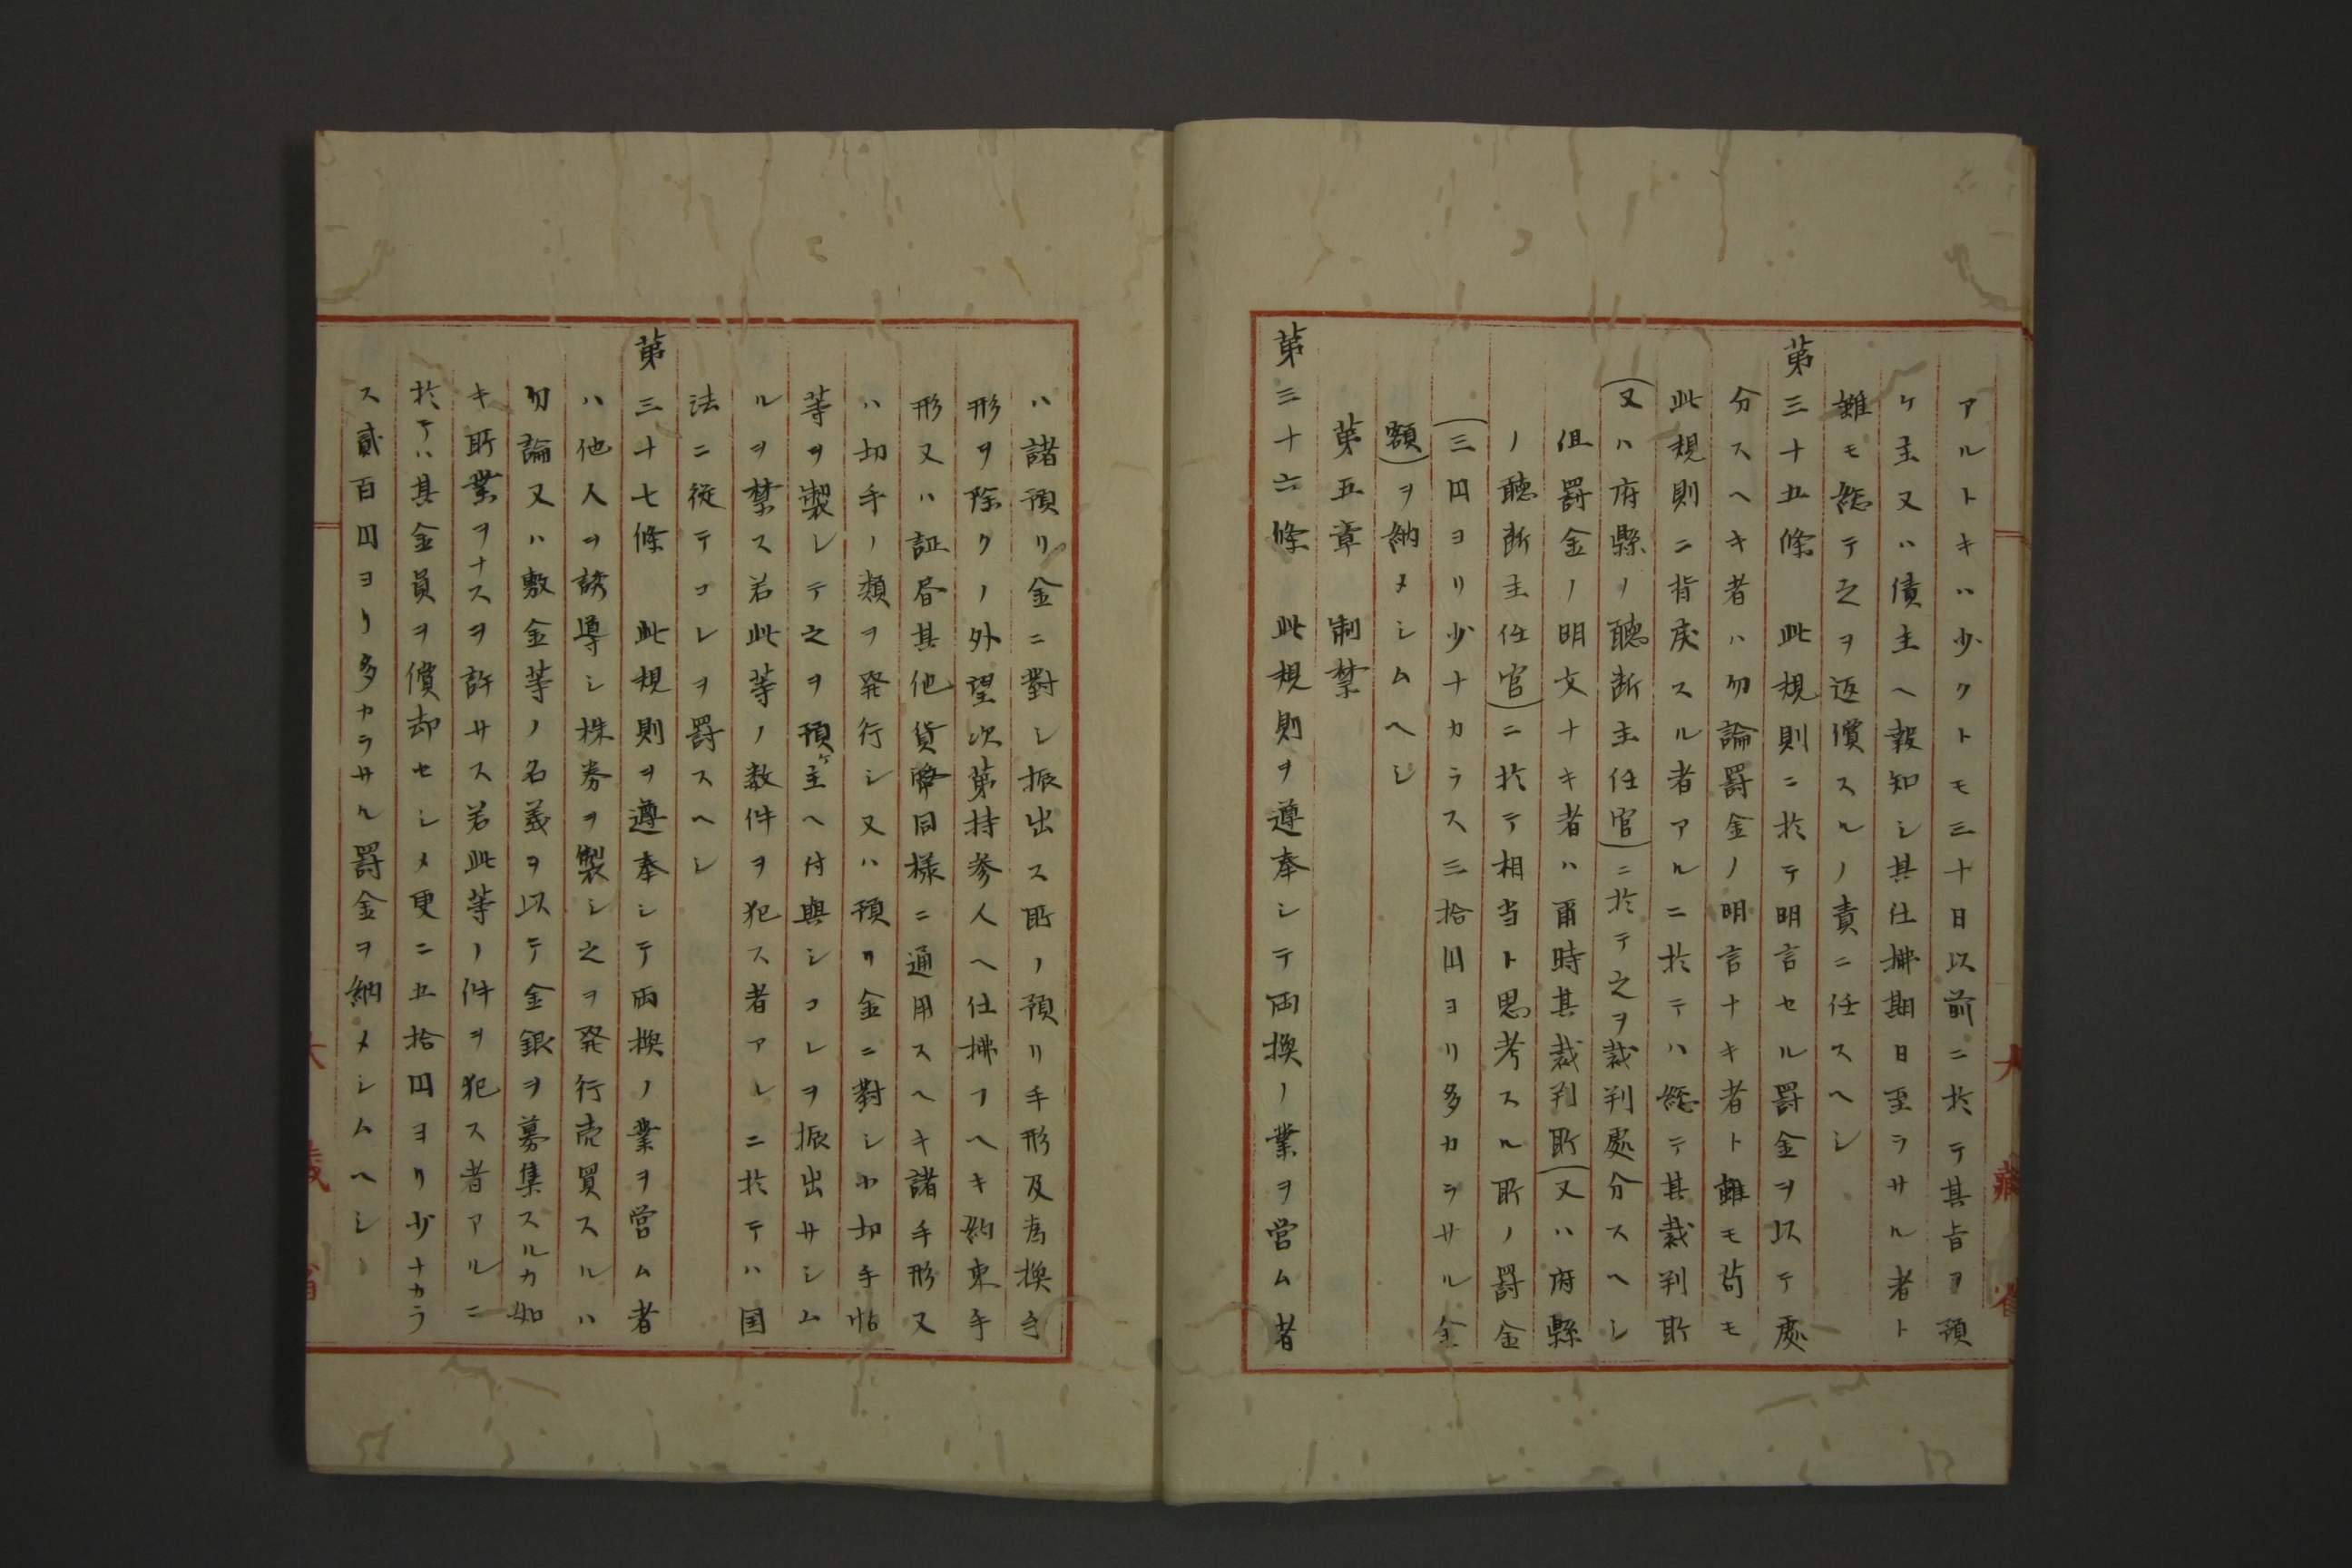 アルトキハ少クトモ三十日以前ニ於テ其旨ヲ預
ケ主又ハ債主ヘ報知シ其仕拂期日至ラサル者ト
雖モ総テ之ヲ返償スルノ責ニ任スヘシ
第三十五條　此規則ニ於テ明言セル罰金ヲ以テ處
分スヘキ者ハ勿論罰金ノ明言ナキ者ト雖モ苟モ
此規則ニ背戻スル者アルニ於テハ総テ其裁判所
（又ハ府縣ノ聽断主任官）ニ於テ之ヲ裁判處分スヘシ
但罰金ノ明文ナキ者ハ甭時其裁判所（又ハ府縣
ノ聽断主任官）ニ於テ相当ト思考スル所ノ罰金
（三円ヨリ少ナカラス三拾円ヨリ多カラサル金
額）ヲ納メシムヘシ
第五章　制禁
第三十六條　此規則ヲ遵奉シテ両換ノ業ヲ営ム者
ハ諸預リ金ニ對シ振出ス所ノ預リ手形及為換手
形ヲ除クノ外望次第持参人ヘ仕拂フヘキ約束手
形又ハ証書其他貨幣同様ニ通用スヘキ諸手形又
ハ切手ノ類ヲ発行シ又ハ預リ金ニ對シ小切手帖
等ヲ製シテ之ヲ預ケ主ヘ付與シコレヲ振出サシム
ルヲ禁ス若此等ノ数件ヲ犯ス者アルニ於テハ国
法ニ従テコレヲ罰スヘシ
第三十七條　此規則ヲ遵奉シテ両換ノ業ヲ営ム者
ハ他人ヲ誘導シ株券ヲ製シ之ヲ発行売買スルハ
勿論又ハ敷金等ノ名義ヲ以テ金銀ヲ募集スルカ如
キ所業ヲナスヲ許サス若此等ノ件ヲ犯ス者アルニ
於テハ其金員ヲ償却セシメ更ニ五拾円ヨリ少ナカラ
ス貳百円ヨリ多カラサル罰金ヲ納メシムヘシ
大藏省